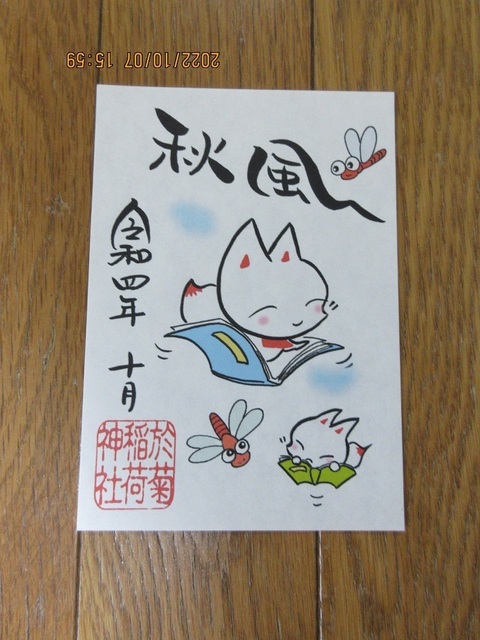 2022/10/07 15:59
秋風
令和四年 十月
於菊
稲荷
神社